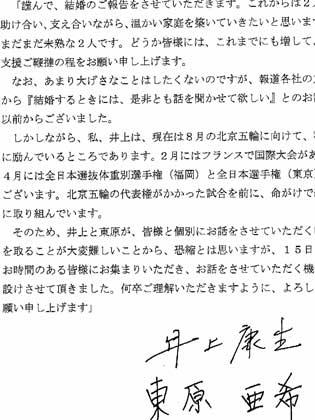 「謹んで、結婚のご報告をさせていただきます。これからは2人
助け合い、支え合いながら、温かい家庭を築いていきたいと思います
まだまだ未熟な2人です。どうか皆様には、これまでにも増して、
支援ご鞭撻の程をお願い申し上げます。
なお、あまり大げさなことはしたくないのですが、報道各社の
から『結婚するときには、是非とも話を聞かせて欲しい』とのお
以前からございました。
しかしながら、私、井上は、現在は8月の北京五輪に向けて、
に励んでいるところであります。2月にはフランスで国際大会があ
4月には全日本選抜体重別選手権（福岡）と全日本選手権（東京
ございます。北京五輪の代表権がかかった試合を前に、命がけで
に取り組んでいます。
そのため、井上と東原が、皆様と個別にお話をさせていただく
を取ることが大変難しいことから、恐縮とは思いますが、15日
お時間のある皆様にお集まりいただき、お話をさせていただく機
設けさせて頂きました。何卒ご理解いただきますように、よろし
願い申し上げます」
井上康生
東原 亜希